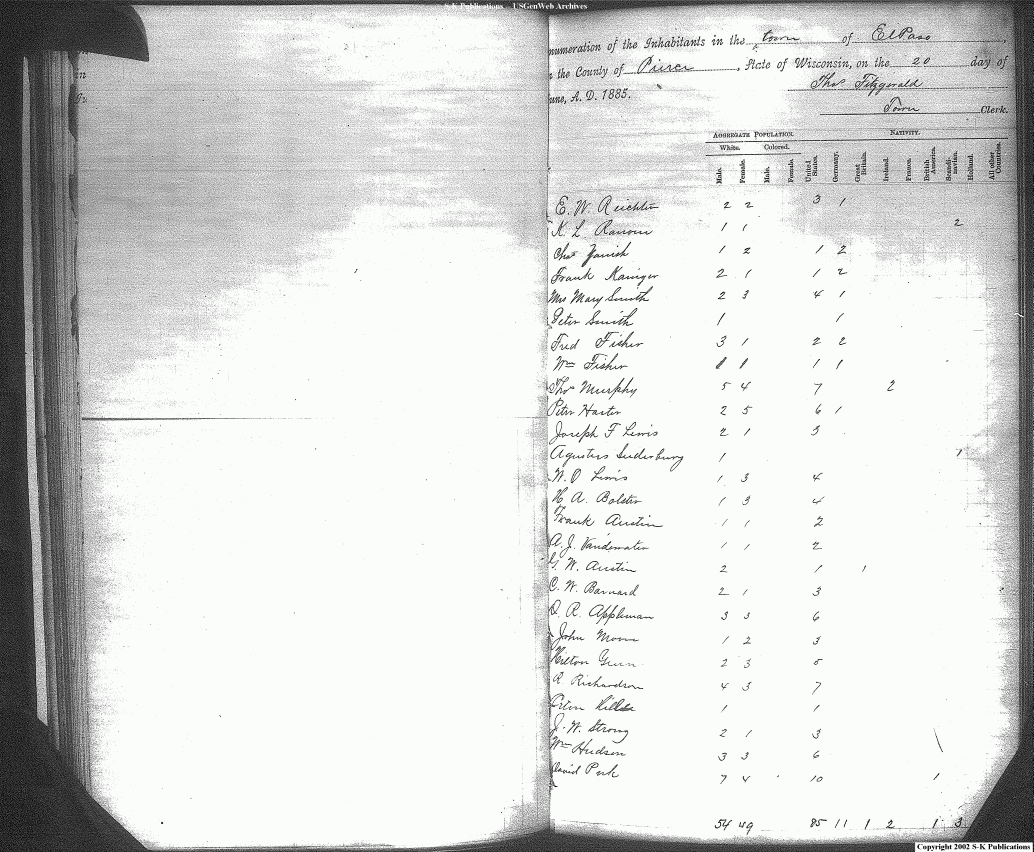 S-K Publications - USGenWeb Archives
numeration of the Inhabitants in the town of ElPaso,
the County of Pierce, State of Wisconsin, on the 20 day of
une, A. D. 1885. Thos Fitzgerald
Town Clerk.
AGGREGATE POPULATION. NATIVITY.
White. Colored.
Male. Female. Male. Female. United States. Germany. Great Britain. Ireland. France. British America. Scandinavian. Holland. All other Countries.
E. W. 2 2 3 1
K. L. Ransom 1 1 2
Chas Yanish 1 2 1 2
Frank Kaniger 2 1 1 2
Mrs Mary Smith 2 3 4 1
Peter Smith 1 1
Fred Fisher 3 1 2 2
Wm Fisher 1 1 1 1
Thos Murphy 5 4 7 2
Peter Harter 2 5 6 1
Joseph F Lewis 2 1 3
Agusters Suderburg 1 1
W. O Lewis 1 3 4
H A. Bolster 1 3 4
Frank Austin 1 1 2
A. J. Vandewater 1 1 2
G. W. Austin 2 1 1
C. W. Barnard 2 1 3
R. Appleman 3 3 6
John 1 2 3
Hilton Gunn 2 3 5
R Richardson 4 3 7
1 1
J. W. Strong 2 1 3
Wm Hudson 3 3 6
David Purk 7 4 10 1
54 49 85 11 1 2 1 3
Copyright 2002 S-K Publications